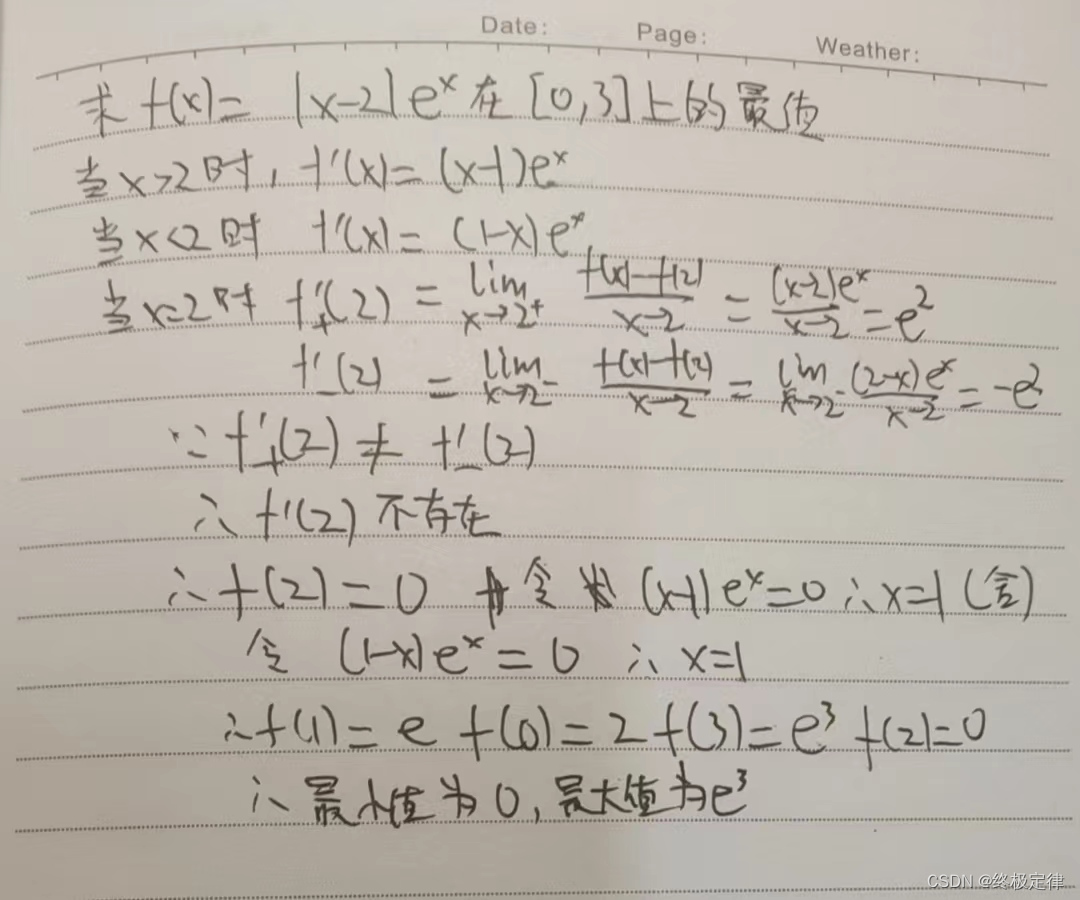 Date: Page: Weather:
求 f(x)= |x-2|eˣ 在 [0,3]上的最值
当x>2时, f'(x)=(x-1)eˣ
当x<2时 f'(x)=(1-x)eˣ
当x=2时 f'₊(2) = lim x→2⁺ f(x)-f(2)/x-2 = (x-2)eˣ/x-2 = e²
f'₋(2) = lim x→2⁻ f(x)-f(2)/x-2 = lim x→2⁻ (2-x)eˣ/x-2 = -e²
∵ f'₊(2) ≠ f'₋(2)
∴ f'(2) 不存在
∴ f(2)=0 令 (x-1)eˣ=0 ∴x=1 (舍)
令 (1-x)eˣ=0 ∴ x=1
∴f(1)=e f(0)=2 f(3)=e³ f(2)=0
∴ 最小值为0, 最大值为e³
CSDN @终极定律